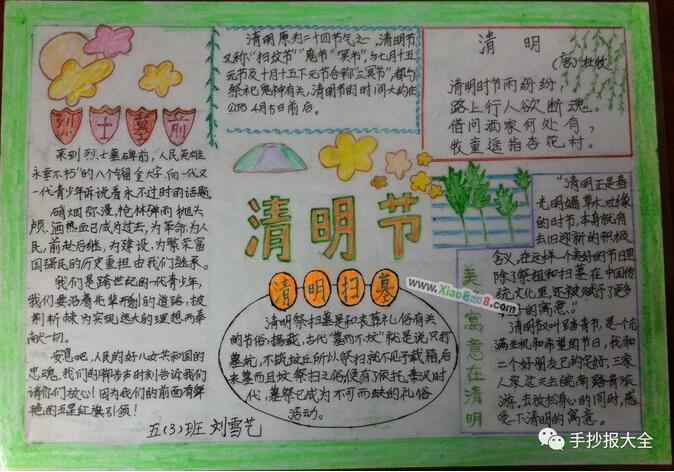 烈士墓前
来到烈士墓碑前,"人民英雄
永垂不朽"的八个镏金大字,向一代又
一代青少年诉说着永不过时的话题。
硝烟弥漫,枪林弹雨 抛头
颅,洒热血已成为过去,为革命为人
民,前赴后继,为建设,为繁荣富
国强民的历史重担由我们继承。
我们是跨世纪的一代青少年,
我们要沿着先辈开创的道路,披
荆斩棘为实现远大的理想而奉
献一切。
安息吧,人民的好儿女共和国的
忠魂,我们的脚步声时刻告诉我们
请你们放心!因为我们的前面有鲜
艳的五星红旗引领!
五(3)班 刘雪艺
清明原为二十四节气之一,清明节
又称"扫坟节""鬼节""冥节",与七月十五
元节及十月十五下元节合称"三冥节",都与
祭祀鬼神有关,清明节的时间大约在
公历4月5日前后。
清明
杜牧
清明时节雨纷纷,
路上行人欲断魂。
借问酒家何处有,
牧童遥指杏花村。
清明节
清明扫墓
清明祭扫墓是和丧葬礼俗有关
的节俗,据载,古代"墓而不坟"就是说只打
墓坑,不筑坟丘所以祭扫就不见于载籍后
来墓而且坟 祭扫之俗,便有了依托,秦汉时
代,墓祭已成为不可而缺的礼俗
活动。
美好寓意在清明
"清明正是春
光明媚草木吐绿
的时节,本身就有
去旧迎新的积极
含义,在这样一个美好的节日里
除了祭祖和扫墓在中国传
统文化里,还被赋予了更多
美好的寓意。"
清明节又叫踏青节,是一个充
满生机和希望的节日,我和
二个好朋友已约定好,三家
人家这天去皖南踏青旅
游,去放松身心的同时,感
受一下清明的寓意。
www.XiaoBao8.com
手抄报大全